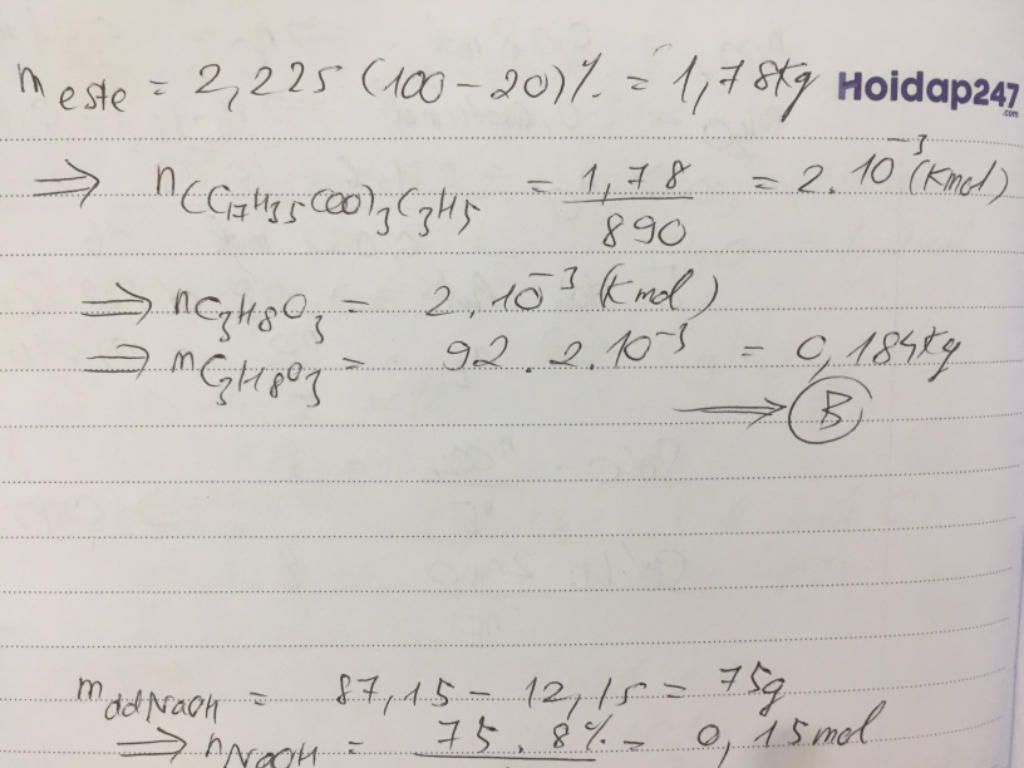 m este = 2,225 (100 - 20)% = 1,78kg
Hoidap247
.com
=> n(C17H35COO)3C3H5 = 1,78/890 = 2.10^-3 (Kmol)
=> nC3H8O3 = 2.10^-3 (Kmol)
=> mC3H8O3 = 92.2.10^-3 = 0,184kg
→ B
m ddNaOH = 87,15 - 12,15 = 75g
=> nNaOH = 75.8% = 0,15mol